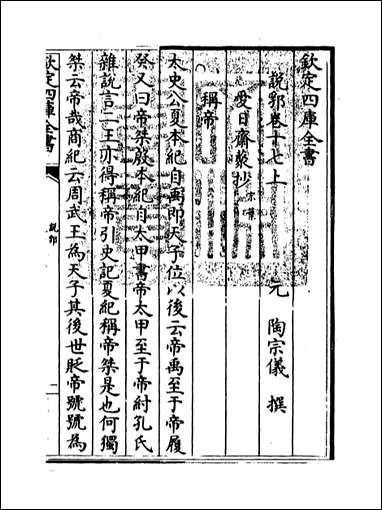 欽定四庫全書
說郛卷十七上
元 陶宗儀 撰
愛日齋藂抄
稱帝
太史公夏本紀自禹即天子位以後云帝禹至于帝履
癸又曰帝桀殷本紀自太甲書帝太甲至于帝紂孔氏
雜說言二王亦得稱帝引史記夏紀稱帝桀是也何獨
桀云帝哉商紀云周武王為天子其後世貶帝號號為
欽定四庫全書
說郛